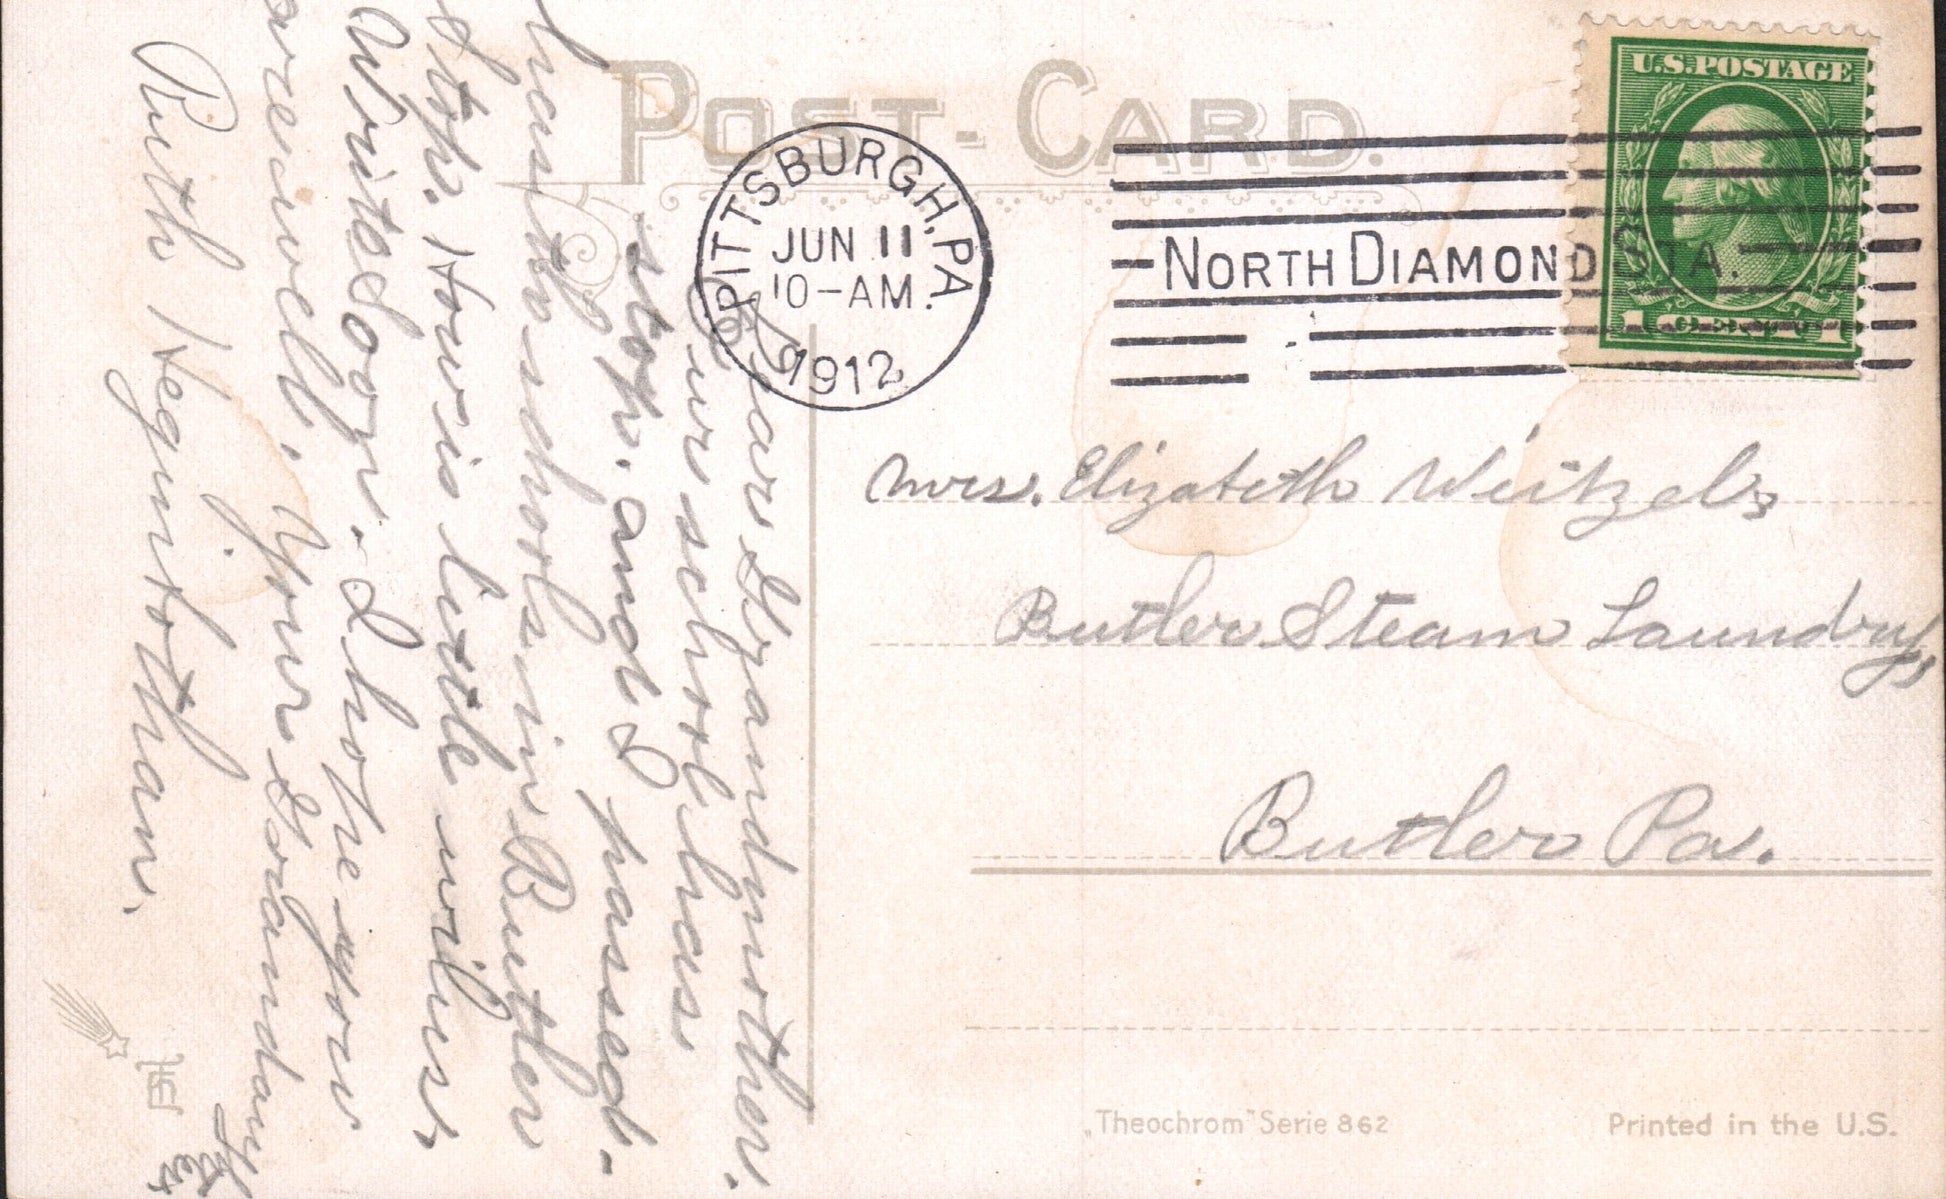 POST-CARD.
U.S.POSTAGE
1 CENT 1
PITTSBURGH, PA
JUN 11
10-AM.
1912
NORTH DIAMOND STA.
Mrs. Elizabeth Weitzel,
Butler Steam Laundry,
Butler Pa.
Dear Grandmother.
Our school has
stop. and I passed-
has the schools in Butler
Stop. How is little wilus,
Write Soon. I hope you
are well. Your Grandau
Ruth Heginbotham.
„Theochrom" Serie 862
Printed in the U.S.